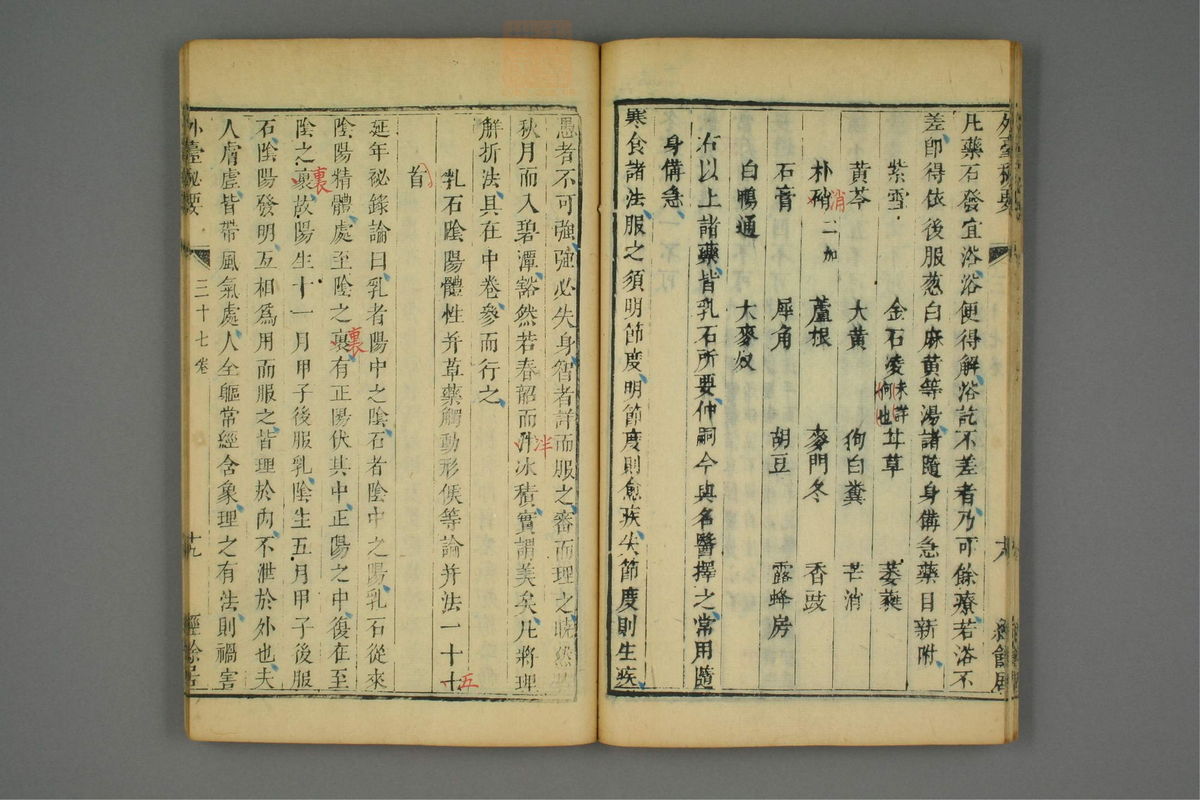 凡藥石發宜浴浴便得解浴訖不差者乃可餘療若浴不
差即得依後服葱白麻黄等湯諸隨身備急藥目新附
紫雪 金石凌未詳何也 甘草 萎蕤
黄芩 大黄 狗白糞 芒消
朴硝二加 蘆根 麥門冬 香豉
消
石膏 犀角 胡豆 露蜂房
白鴨通 大麥奴
右以上諸藥皆乳石所要仲嗣今與名醫擇之常用隨
身備急
寒食諸法服之須明節度明節度則愈疾失節度則生疾
愚者不可強強必失身智者詳而服之審而理之曉然若
秋月而入碧潭豁然若春韶而冰積實謂美矣凡將理
泮
解折法具在中卷參而行之
乳石陰陽體性并草藥觸動形候等論并法一十七
五
首
延年祕錄論曰乳者陽中之陰石者陰中之陽乳石從來
陰陽精體處至陰之裹有正陽伏其中正陽之中復在至
裏
陰之裹故陽生十一月甲子後服乳陰生五月甲子後服
裏
石陰陽發明互相爲用而服之皆理於内不泄於外也夫
人膚虚皆帶風氣處人全軀常經含象理之有法則禍害
外臺秘要 三十七卷 十九 經餘居